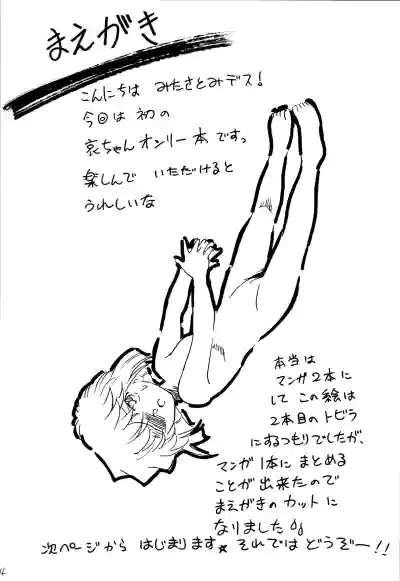 まえがき
こんにちは みたさとみデス!
今回は 初の
哀ちゃん オンリー 本 ですっ
楽しんで いただけると
うれしいな
本当は
マンガ2本に
して この絵は
2本目の トビラ
にするつもりでしたが、
マンガ 1本に まとめる
ことが 出来たので
まえがきの カットに
なりました
次ページから はじまります★ それでは どうぞー!!
4